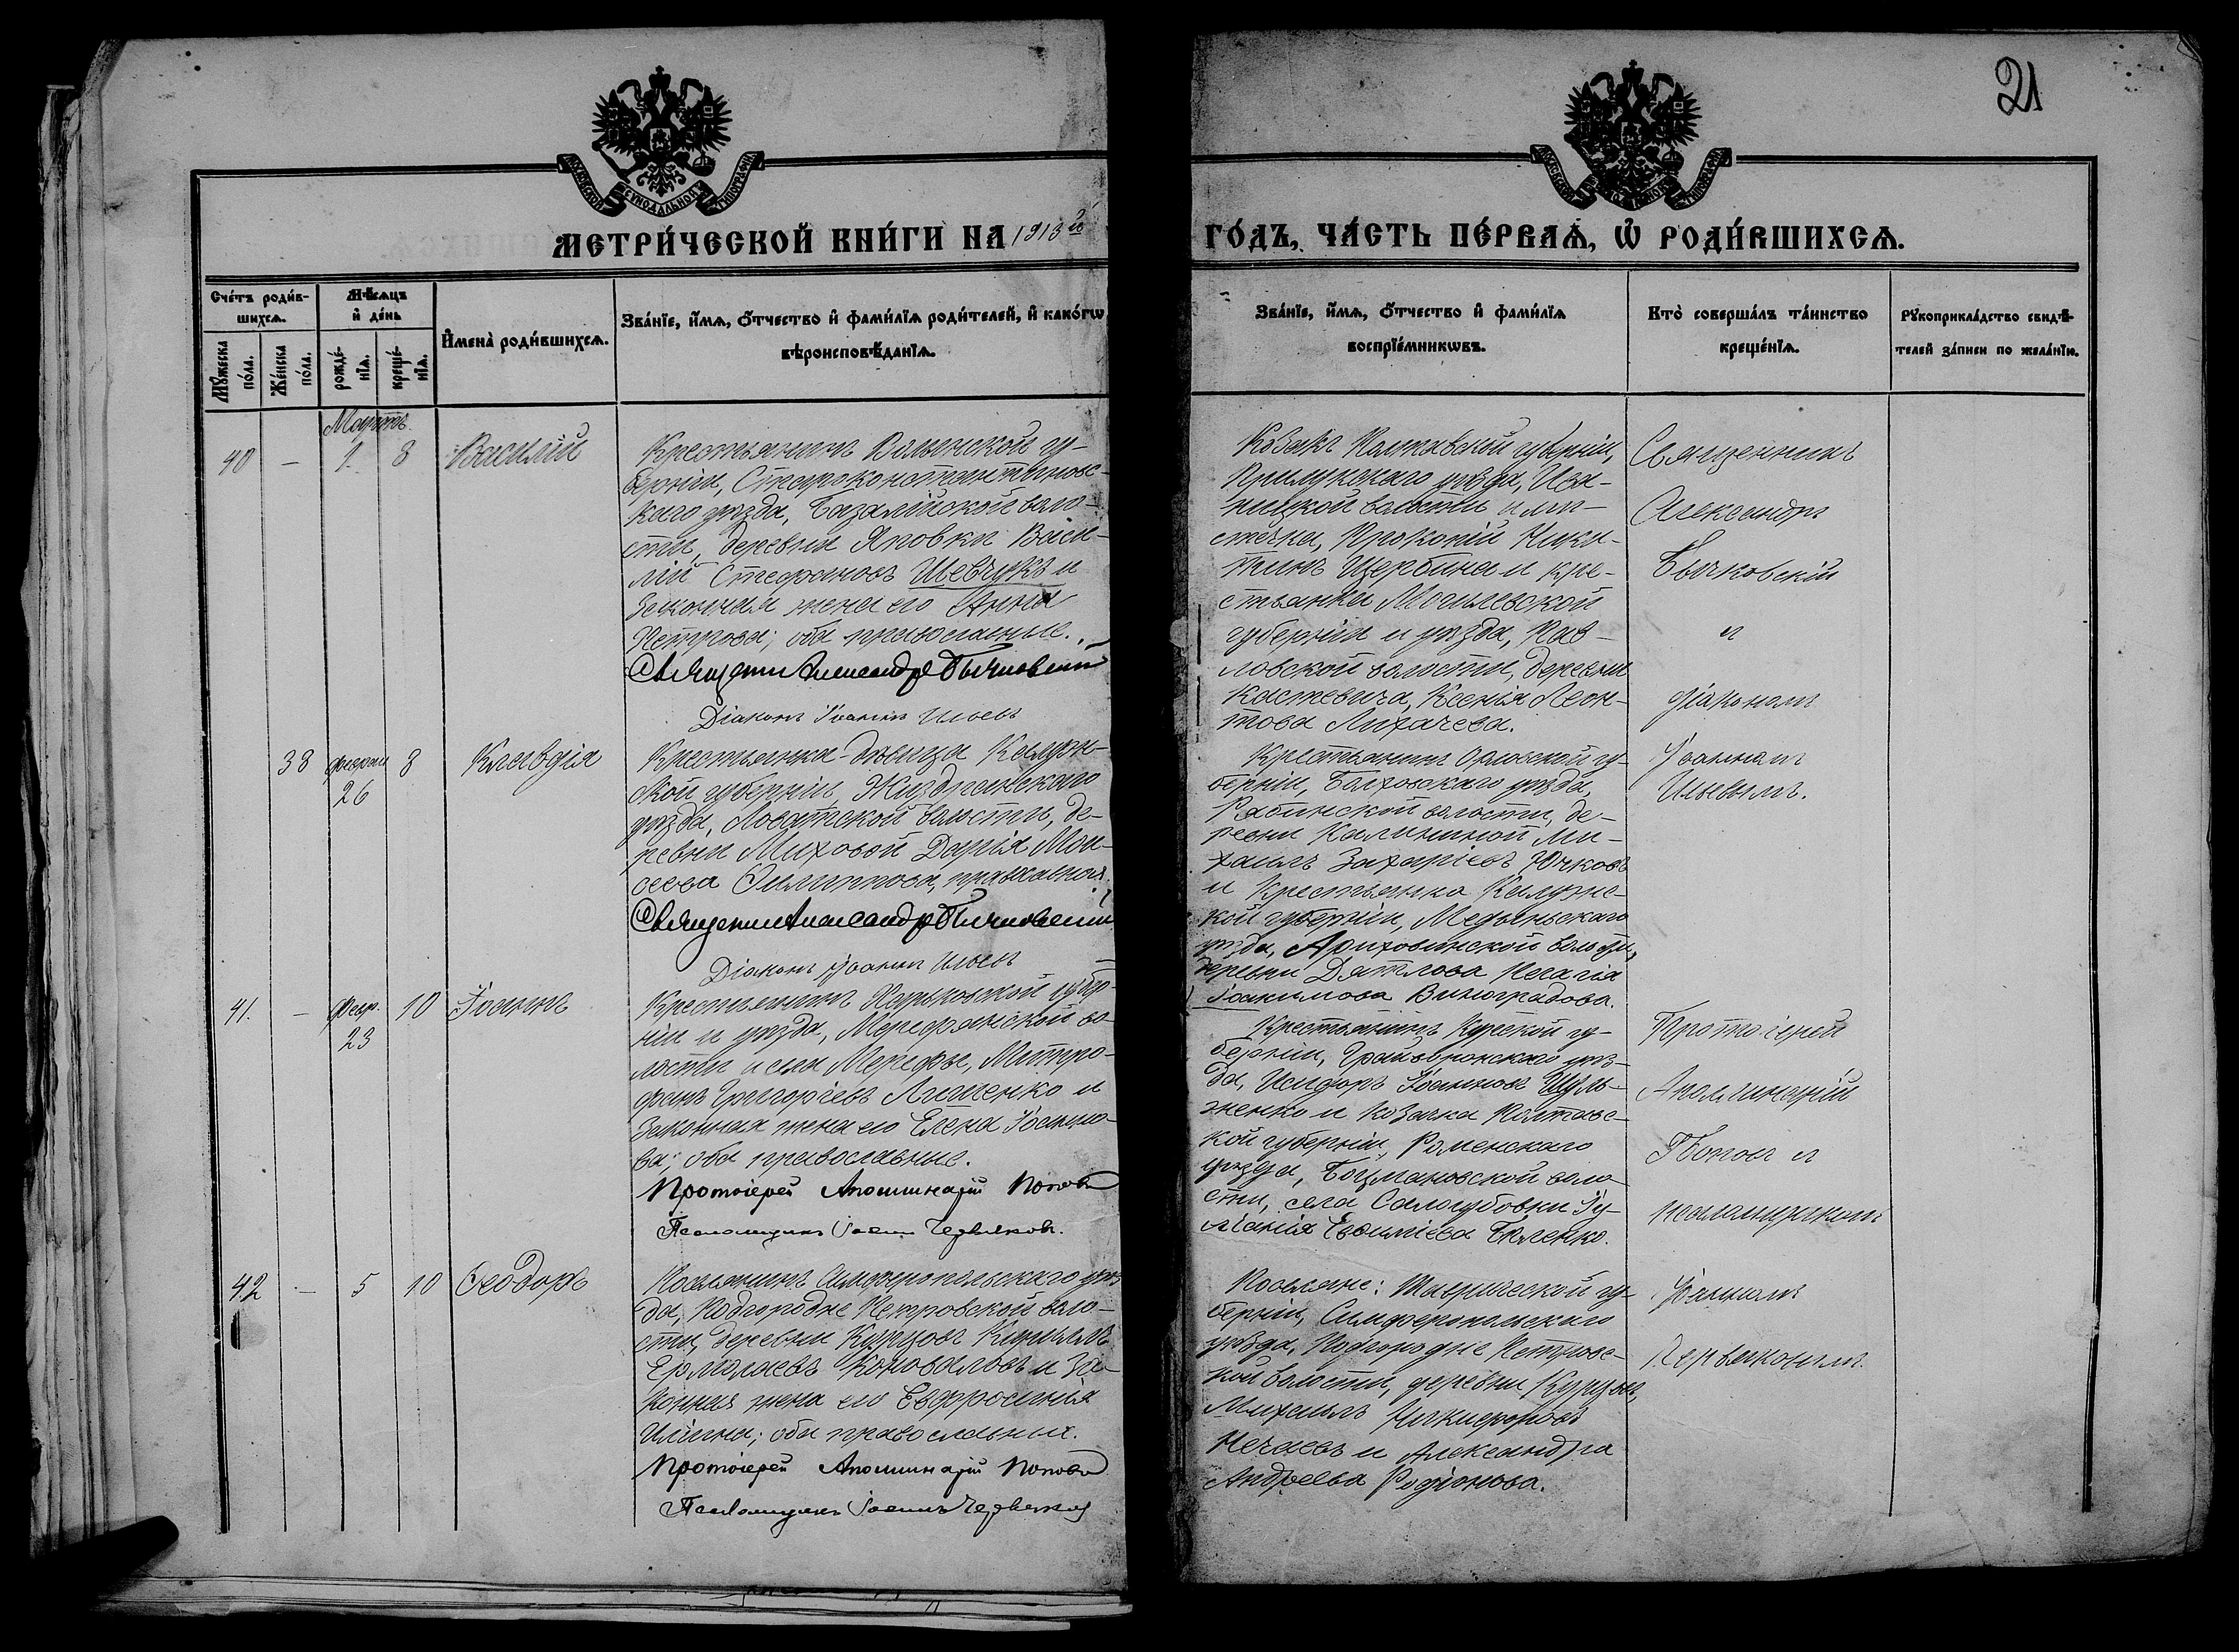 21
МОСКОВСКОЙ СѴНОДАЛЬНОЙ ТИПОГРАФІИ
МОСКОВСКОЙ СѴНОДАЛЬНОЙ ТИПОГРАФІИ
МЕТРИ́ЧЕСКОЙ КНИ́ГИ НА 1913й
ГО́ДЪ, ЧА́СТЬ ПЕ́РВАѦ, Ѡ РОДИ́ВШИХСѦ.
Сче́тъ роди́в-
шихсѧ.
Мѣ́сѧцъ
и҆ де́нь
Мꙋ́жеска
по́ла.
Же́нска
по́ла.
рожде́-
нїѧ.
креще́-
нїѧ.
И҆мена̀ роди́вшихсѧ.
Зва́нїе, и҆́мѧ, ѻ҆́тчество и҆ фами́лїѧ роди́телей, и҆ како́гѡ
вѣроисповѣ́данїѧ.
Зва́нїе, и҆́мѧ, ѻ҆́тчество и҆ фами́лїѧ
воспрїе́мникѡвъ.
Кто̀ соверша́лъ та́инство
креще́нїѧ.
Рꙋкоприкла́дство свидѣ́-
телей за́писи по жела́нїю.
Мартъ.
40 — 1. 8 Василій
Крестьянинъ Волынской гу-
берніи, Староконстантиновс-
каго уѣзда, Базалійской воло-
сти, деревни Яновки Васи-
лій Стефановъ Шевчукъ и
законная жена его Анна
Петрова; оба православные.
Священникъ Александръ Бычковскій
Діаконъ Іоаннъ Ильевъ
Козакъ Полтавской губерніи,
Прилукскаго уѣзда, Ива-
ницкой волости и мѣ-
стечка, Прокопій Ники-
тинъ Щербина и кре-
стьянка Могилевской
губерніи и уѣзда, Пав-
ловской волости, деревни
Костевича, Ксенія Леон-
това Лихачева.
Священникъ
Александръ
Бычковскій
и
діакономъ
Іоанномъ
Ильевымъ.
38 Февраля 26 8 Клавдія
Крестьянка-дѣвица Калуж-
ской губерніи, Жиздринскаго
уѣзда, Ловатской волости, де-
ревни Миховой Дарія Мои-
сеева Филиппова, православная.
Священникъ Александръ Бычковскій
Діаконъ Іоаннъ Ильевъ
Крестьянинъ Орловской гу-
берніи, Болховскаго уѣзда,
Рябинской волости, де-
ревни Калининой Ми-
хаилъ Захаріевъ Ючковъ
и крестьянка Калужс-
кой губерніи, Медынскаго
уѣзда, волости,
деревни Дятлова Пелагія
Іоакимова Виноградова.
41. — Февр. 23 10 Іоаннъ
Крестьянинъ Харьковской губер-
ніи и уѣзда, Мерефянской во-
лости и села Мерефы, Митро-
фанъ Григоріевъ Ляшенко и
законная жена его Елена Іоанно-
ва; оба православные.
Протоіерей Аполлинарій Поповъ
Псаломщикъ Іоаннъ Червяковъ.
Крестьянинъ Курской гу-
берніи, Грайворонскаго уѣз-
да, Исидоръ Іоанновъ Шуль-
женко и козачка Полтавс-
кой губерніи, Роменскаго
уѣзда, Боцмановской воло-
сти, села Сологубовки Іу-
ліанія Евфиміева Биленко.
Протоіерей
Аполлинарій
Поповъ и
псаломщикомъ
Іоанномъ
Червяковымъ.
42 — 5 10 Ѳеодоръ
Поселянинъ Симферопольскаго уѣз-
да, Подгородне Петровской воло-
сти, деревни Курцовъ Кириллъ
Ермолаевъ Коноваловъ и за-
конная жена его Евфросинія
Илiина; оба православные.
Протоіерей Аполлинарій Поповъ
Псаломщикъ Іоаннъ Червяковъ
Поселяне: Таврической гу-
берніи, Симферопольскаго
уѣзда, Подгородне Петровс-
кой волости, деревни Курцовъ,
Михаилъ Никифоровъ
Нечаевъ и Александра
Андреева Родіонова.